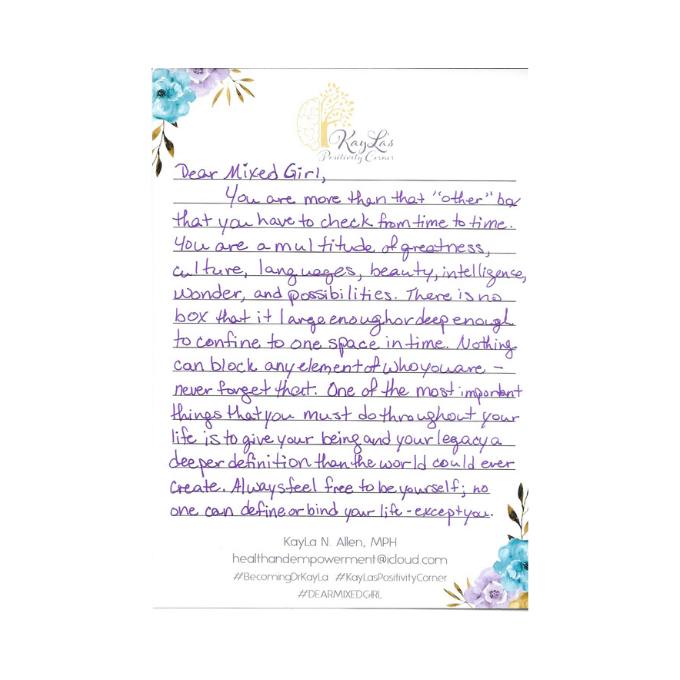 KayLa's
Positivity Corner
Dear Mixed Girl,
You are more than that "other" box
that you have to check from time to time.
You are a multitude of greatness,
culture, languages, beauty, intelligence,
wonder, and possibilities. There is no
box that it large enough or deep enough
to confine to one space in time. Nothing
can block any element of who you are –
never forget that. One of the most important
things that you must do throughout your
life is to give your being and your legacy a
deeper definition than the world could ever
create. Always feel free to be yourself; no
one can define or bind your life - except you.
KayLa N. Allen, MPH
healthandempowerment@icloud.com
#BecomingDrKayLa #KayLasPositivityCorner
#DEARMIXEDGIRL